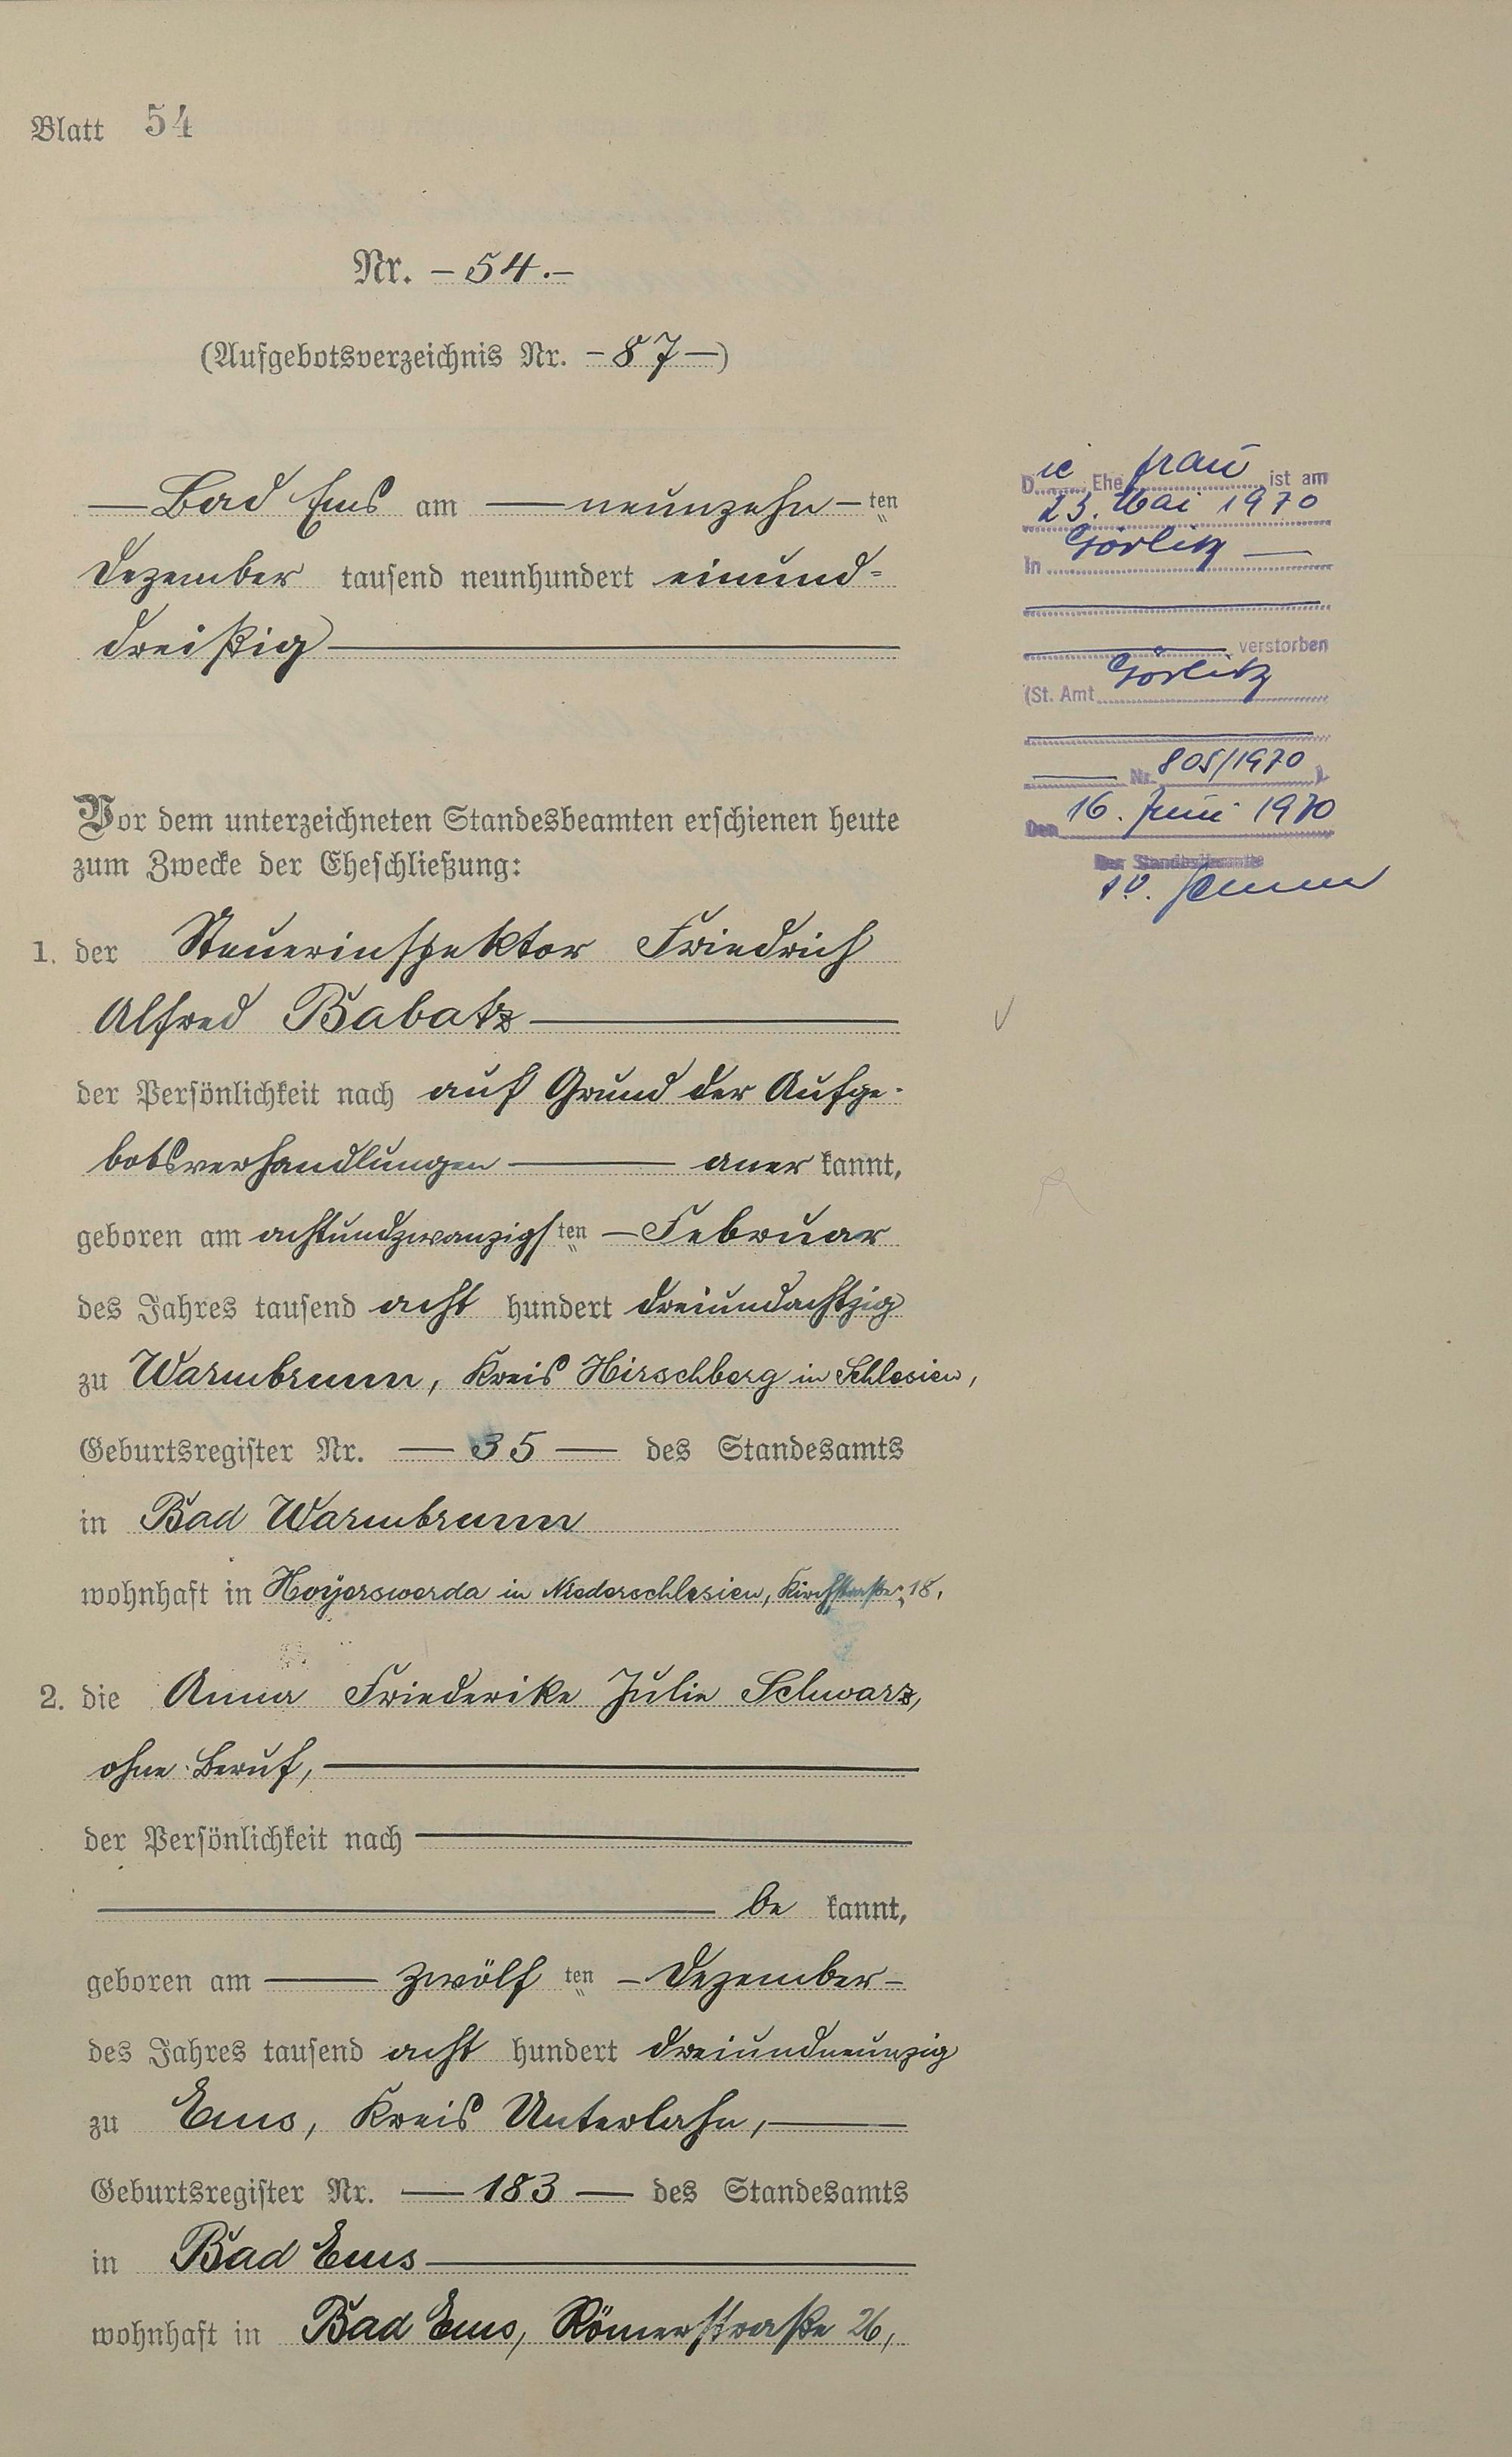 Blatt 54
Nr. – 54. –
(Aufgebotsverzeichnis Nr. – 87 –)
— Bad Ems am — neunzehn – ten
Dezember tausend neunhundert einund=
dreißig —
Vor dem unterzeichneten Standesbeamten erschienen heute
zum Zwecke der Eheschließung:
1. der Steuerinspektor Friedrich
Alfred Babatz —
der Persönlichkeit nach auf Grund der Aufge-
botsverhandlungen — aner kannt,
geboren am achtundzwanzigsten – Februar
des Jahres tausend acht hundert dreiundachtzig
zu Warmbrunn, Kreis Hirschberg in Schlesien,
Geburtsregister Nr. — 35 — des Standesamts
in Bad Warmbrunn
wohnhaft in Hoyerswerda in Niederschlesien, Kirchstraße 18,
2. die Anna Friederike Julie Schwarz,
ohne Beruf, —
der Persönlichkeit nach —
— be kannt,
geboren am — zwölf ten – Dezember –
des Jahres tausend acht hundert dreiundneunzig
zu Ems, Kreis Unterlahn, —
Geburtsregister Nr. — 183 — des Standesamts
in Bad Ems —
wohnhaft in Bad Ems, Römerstraße 26,
Die Ehefrau ist am
23. Mai 1970
in Görlitz —
— verstorben
(St. Amt Görlitz
— Nr. 805/1970 ).
Den 16. Juni 1970
Der Standesbeamte